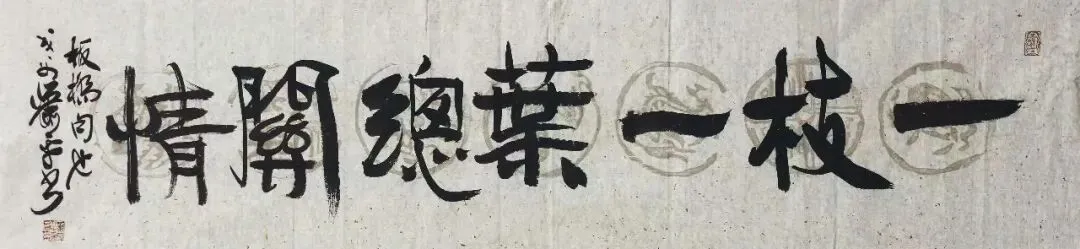 一枝一葉總關情
板橋句也